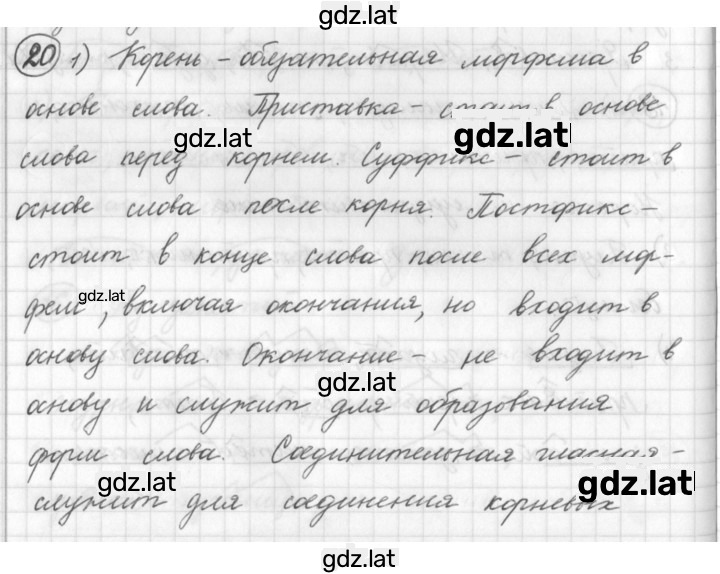 gdz.lat
20 1) Корень – обязательная морфема в
основе слова. Приставка – стоит в основе
gdz.lat
gdz.lat
слова перед корнем. Суффикс – стоит в
основе слова после корня. Постфикс –
стоит в конце слова после всех мор-
gdz.lat
фем, включая окончания, но входит в
основу слова. Окончание – не входит в
gdz.lat
основу и служит для образования
форм слова. Соединительная гласная –
gdz.lat
gdz.lat
служит для соединения корневых
gdz.lat